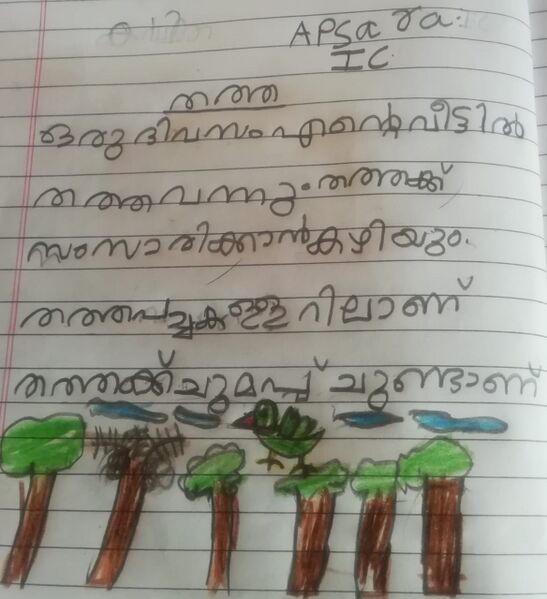 APSara:
IC
തത്ത
ഒരു ദിവസം എന്റെ വീട്ടിൽ
തത്ത വന്നു. തത്തക്ക്
സംസാരിക്കാൻ കഴിയും.
തത്ത പച്ച കള്ളറിലാണ്
തത്തക്ക് ചുമപ്പ് ചുണ്ടാണ്